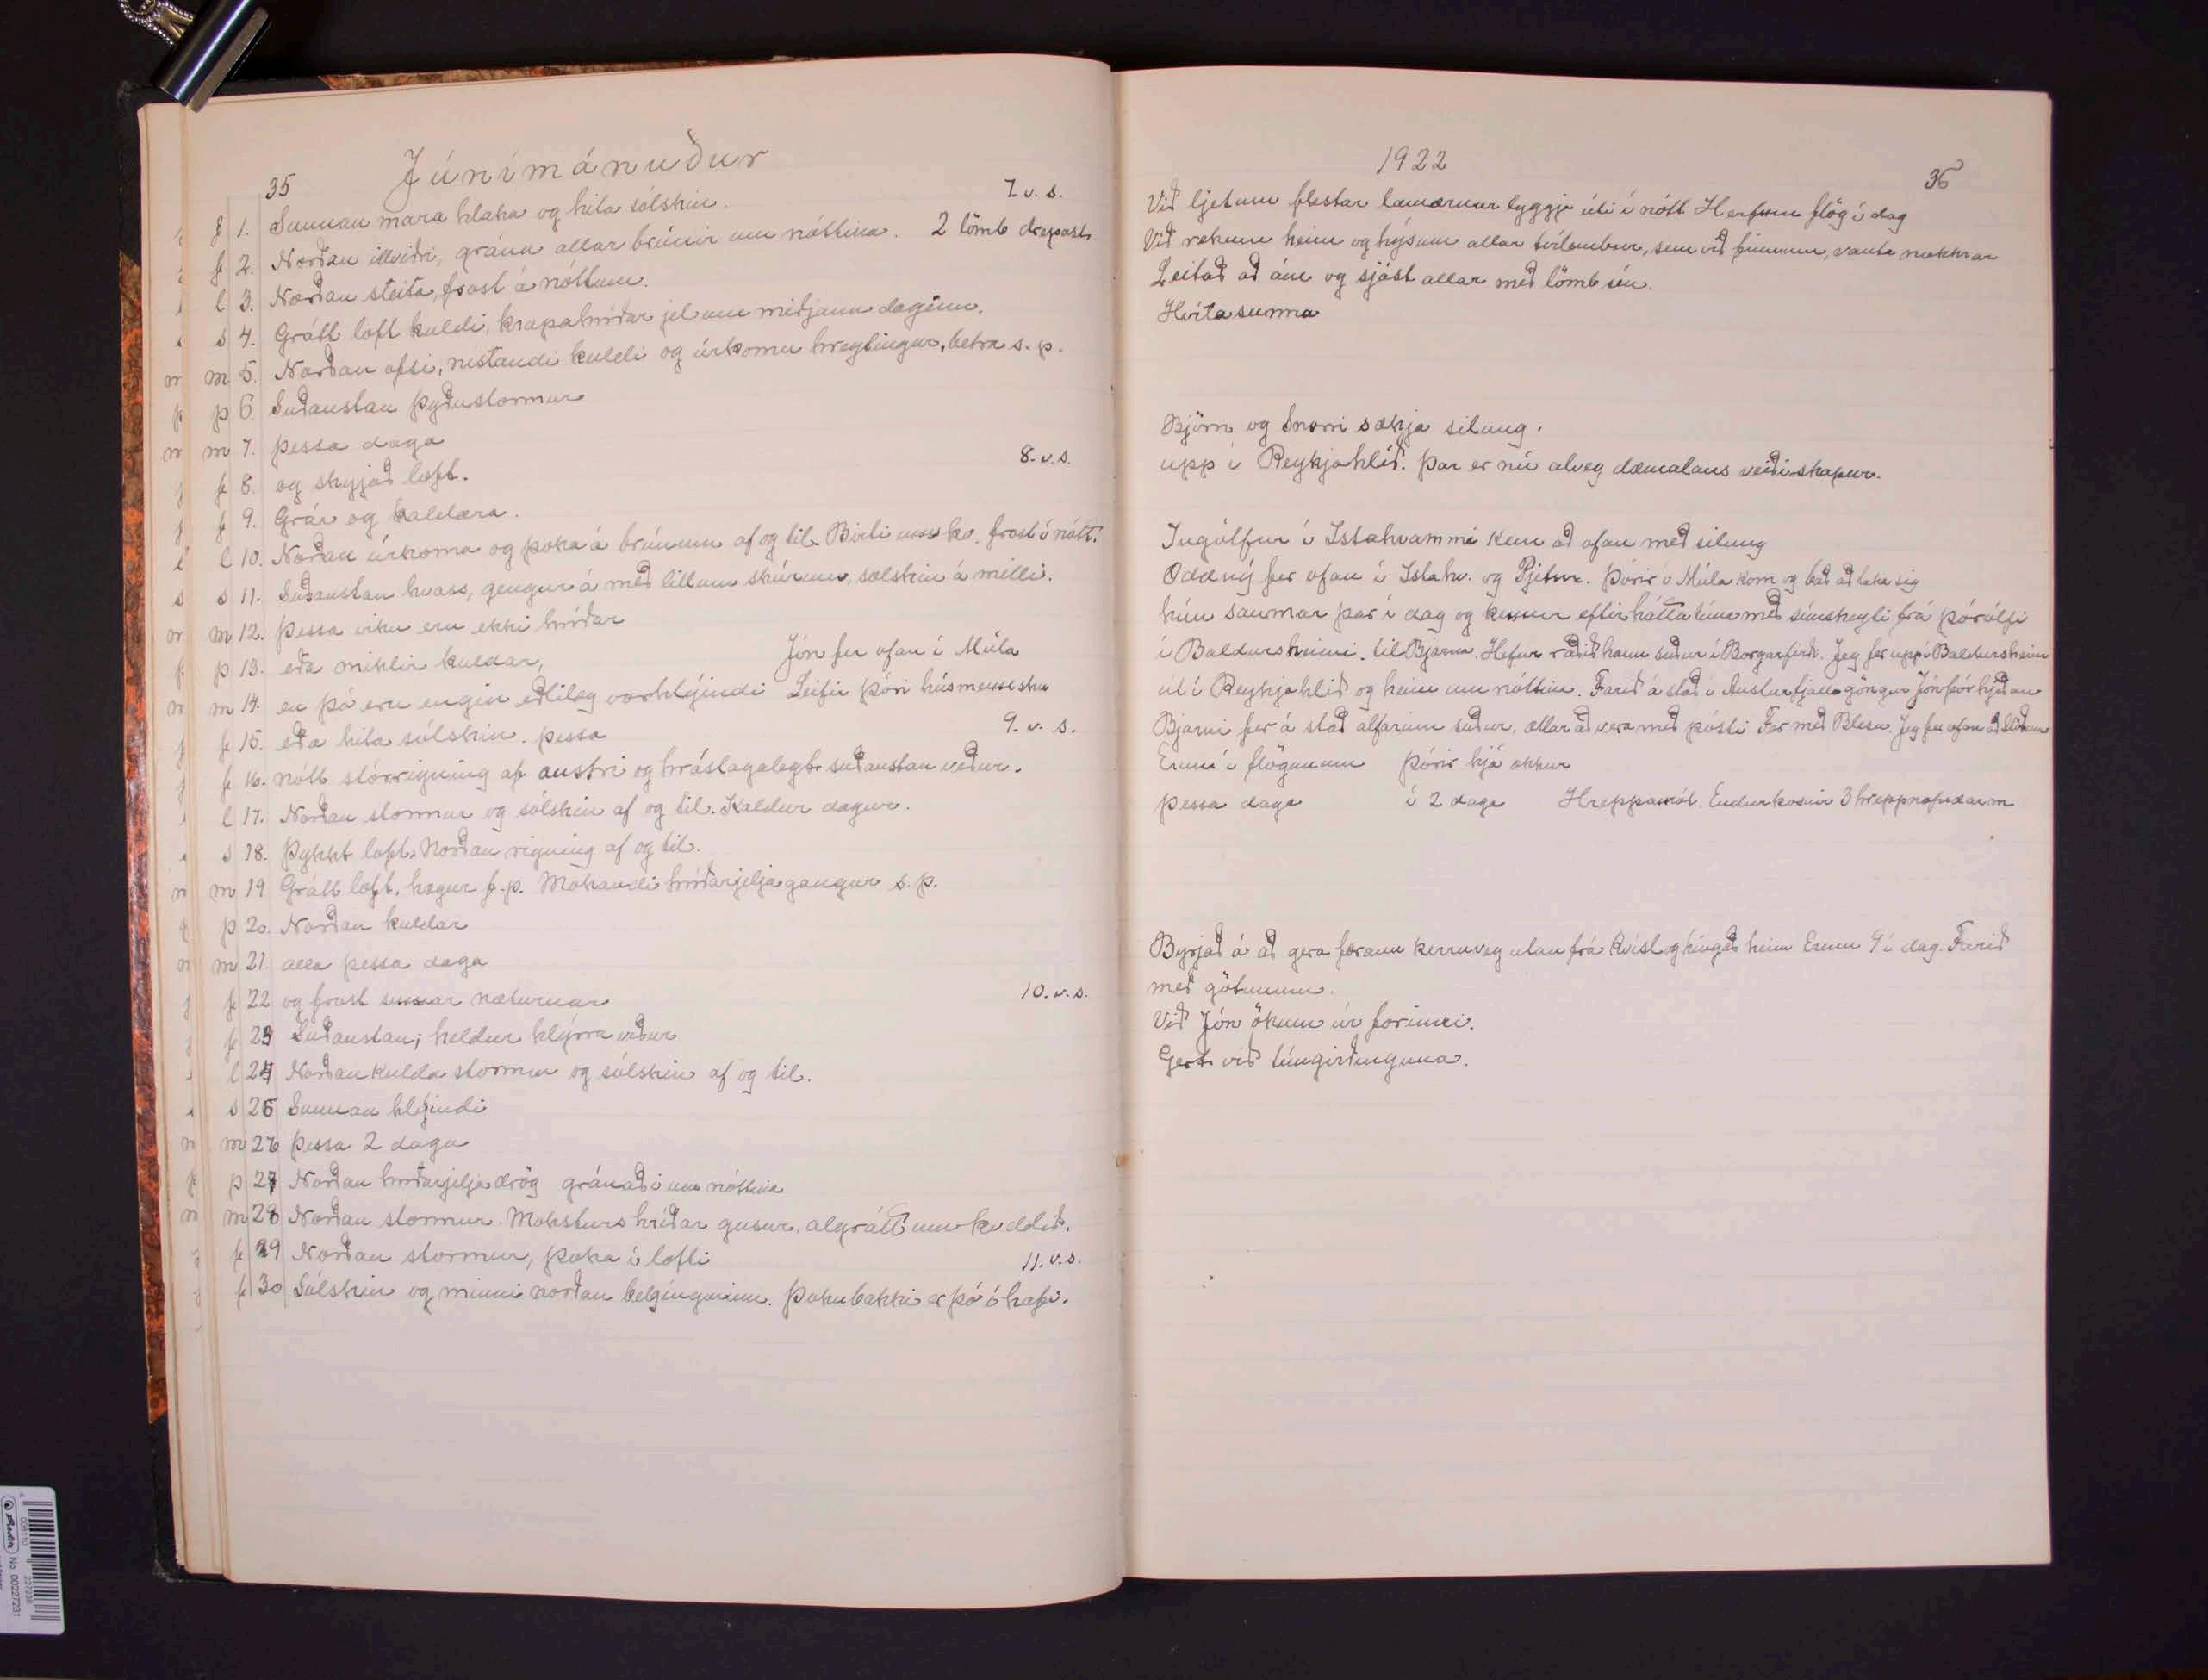 35
Júnímánuður
7 v. s.
f 1. Sunnan mara hlaka og hita sólskin.
f 2. Norðan illviðri, grána allar brúnir um nóttina. 2 lömb drepast
l 3. Norðan steita, frost á nóttum.
s 4. Grátt loft kuldi, krapahríðar jel um miðjann daginn.
m 5. Norðan ofsi, nístandi kuldi og úrkomu hreytingur, betra s. p.
þ 6. Suðaustan þýðustormur
m 7. þessa daga
f 8. og skyjað loft. 8. v. s.
f 9. Grár og kaldara.
l 10. Norðan úrkoma og þoka á brúnum af og til. Birti um kv. frost í nótt.
s 11. Suðaustan hvass, gengur á með litlum skúrum, sólskin á milli.
m 12. þessa viku eru ekki hríðar
þ 13. eða miklir kuldar, Jón fer ofan í Múla
m 14. en þó eru engin eðlileg vorhlýindi Leifir Þóri húsmennsku
f 15. eða hita sólskin. þessa 9. v. s.
f 16. nótt stórrigning af austri og hráslagalegt suðaustan veður.
l 17. Norðan stormur og sólskin af og til. Kaldur dagur.
s 18. Þykkt loft. Norðan rigning af og til.
m 19 Grátt loft, hægur f. p. Mokandi hríðarjeljagangur s. p.
þ 20. Norðan kuldar
m 21. alla þessa daga
f 22 og frost sumar næturnar 10. v. s.
f 23 Suðaustan; heldur hlýrra veður
l 24 Norðan kulda stormur og sólskin af og til.
s 25 Sunnan hlýindi
m 26 þessa 2 daga
þ 27 Norðan hríðarjelja drög gránaði um nóttina
m 28 Norðan stormur. Moksturs hríðar gusur, algrátt um kveldið.
f 29 Norðan stormur, þoka í lofti 11. v. s.
f 30 Sólskin og minni norðan belgingurinn. Þokubakki er þó á hafi.
1922
36
Við ljetum flestar lamærnar lyggja úti í nótt Herfum flög í dag
Við rekum heim og hýsum allar tvílembur, sem við finnum, vanta nokkrar
Leitað að ám og sjást allar með lömb sín.
Hvítasunna
Björn og Snorri sækja silung.
upp í Reykjahlíð. Þar er nú alveg dæmalaus veiðiskapur.
Ingólfur í Ystahvammi kem að ofan með silung
Oddný fer ofan í Ystahv. og Pjetur. Þórir í Múla kom og bað að taka sig
hún saumar þar í dag og kemur eftir háttatíma með símskeyti frá Þórólfi
í Baldursheimi. til Bjarna. Hefur ráðið hann suður í Borgarfirði. Jeg fer upp í Baldursheim
út í Reykjahlíð og heim um nóttina. Farið á stað í Austurfjallagöngur Jón fór hjeðan
Bjarni fer á stað alfarinn suður, ætlar að vera með pósti Fer með Blesu. Jeg fer ofan að
Erum í flögunum Þórir hjá okkur
þessa daga í 2 daga Hreppamót. Endurkosnir 3 hreppnefndarm
Byrjað á að gera færann kerruveg utan frá Kvísl og hingað heim Erum 9 í dag. Farið
með götunum.
Við Jón ökum úr forinni.
Gert við túngirðinguna.